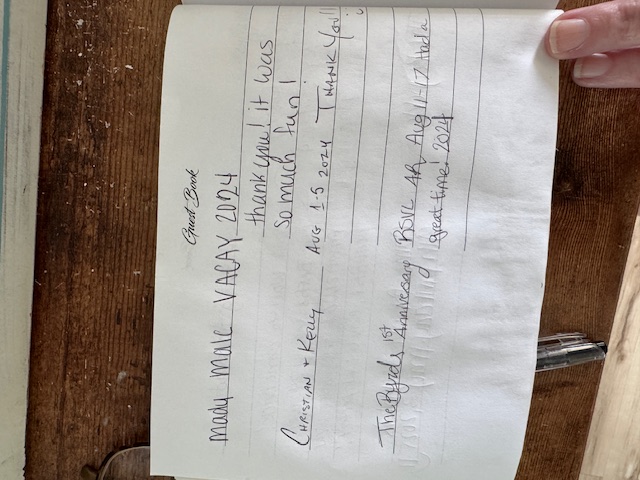 Guest Book
mady malc VACAY 2024
thank you! it was
so much fun!
CHRISTIAN + Kelly AUG 1-5 2024 THANK YOU!!
The Byrds 1st Anniversary BSVL AR Aug 11-17 Had a
great time! 2024